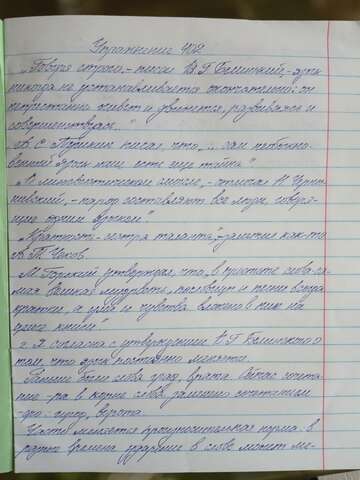 Упражнение 402
„Говоря строго, - писал В.Г Белинский, - язык
никогда не устанавливается окончательно: он
непрестанно живёт и движется, развиваясь и
совершенствуясь..."
А С Пушкин писал, что „... сам необыкно-
венный язык наш есть ещё тайна"
„В лингвистическом смысле, - отмечал Н Черны-
шевский, - народ составляют все люди, говоря-
щие одним языком"
„Краткость - сестра таланта", - заметил как-то
А П Чехов
М Горький утверждал, что „в простоте слова са-
мая великая мудрость, пословицы и песни всегда
кратки, а ума и чувства вложено в них на
целые книги"
Я согласна с утверждением В Г Белинского о
том, что язык постоянно меняется.
Раньше были слова град, врата. Сейчас сочета-
ние -ра в корне слова заменило сочетание
-оро: город, ворота.
Часто меняется произносительная норма: в
разное время ударение в слове может ме-